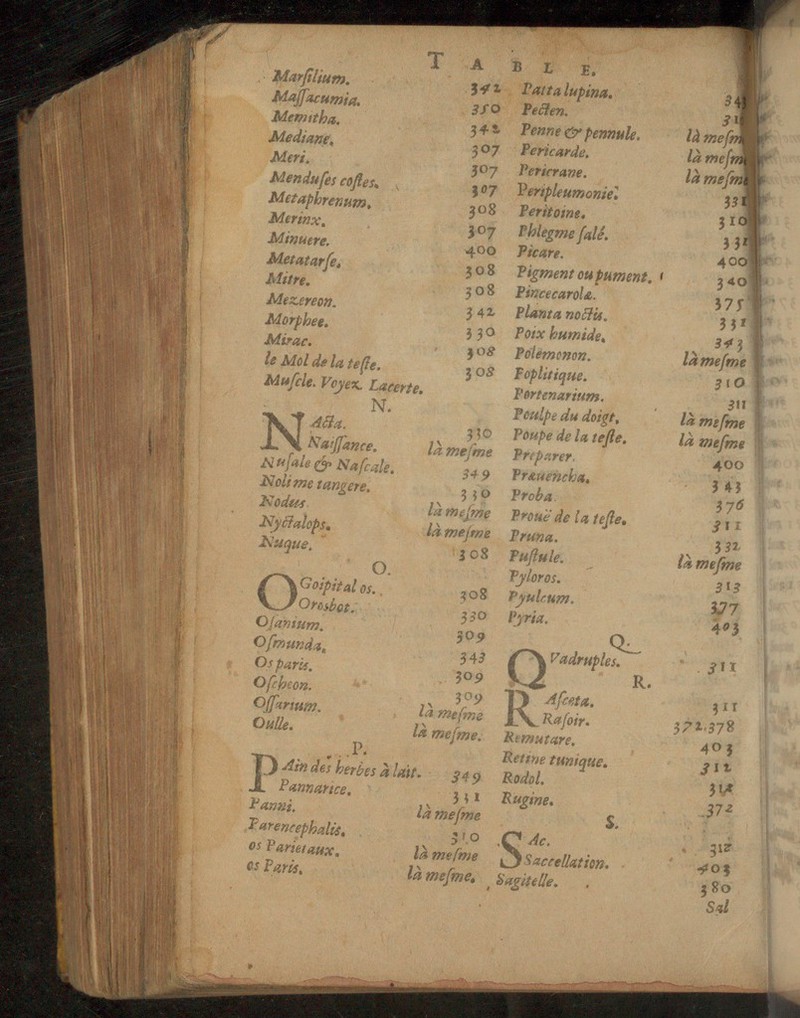 TABLE,
Marſilium. 342
Maſſacumia. 350
Memitha, 342
Mediane, 307
Meri. 307
Menduſes coſtes, 307
Metaphrenum, 308
Merinx, 307
Minuere. 400
Metatarſe, 308
Mitre, 308
Mezereon. 342
Morphee, 330
Mirac. 308
le Mol de la teſte. 308
Muſcle. Voyez Lacerte,
N.
NActa. 330
Naiſſance. là meſme
Nuſale & Naſcale, 349
Noli me tangere, 330
Nodus. là meſme
Nyctalops. là meſme
Nuque, 308
O.
OGoſpital os. 308
Orosbot. 330
Oſanium. 309
Oſmunda, 343
Os paris, 309
Oſcheon. 309
Oſſarium. là meſme
Oulle. là meſme.
P.
PAin des herbes à lait. 349
Pannarice, 331
Panni. là meſme
Parencephalis, 310
os Parietaux. là meſme
os Paris, là meſme.
Patta lupina.
Pecten.
Penne & pennule. là
Pericarde, là
Pericrane. là
Peripleumonie.
Peritoine. 310
Phlegme ſalé.
Picare. 400
Pigment ou pument, 340
Pincecarola. 375
Planta noctis. 331
Poix humide, 343
Polemonon. là meſme
Poplitique. 310
Portenarium. 311
Poulpe du doigt, là meſme
Poupe de la teſte, là meſme
Preparer. 400
Prauencha, 343
Proba. 376
Prouë de la teſte, 311
Pruna. 332
Puſtule. là meſme
Pyloros. 313
Pyulcum. 377
Pyria. 403
Q.
QVadruples. 311
R.
RAſceta, 311
Raſoir. 372.378
Remutare, 403
Retine tunique, 312
Rodol.
Rugine, 372
S.
SAc. 312
Saccellation. 403
Sagitelle. 380
Sal